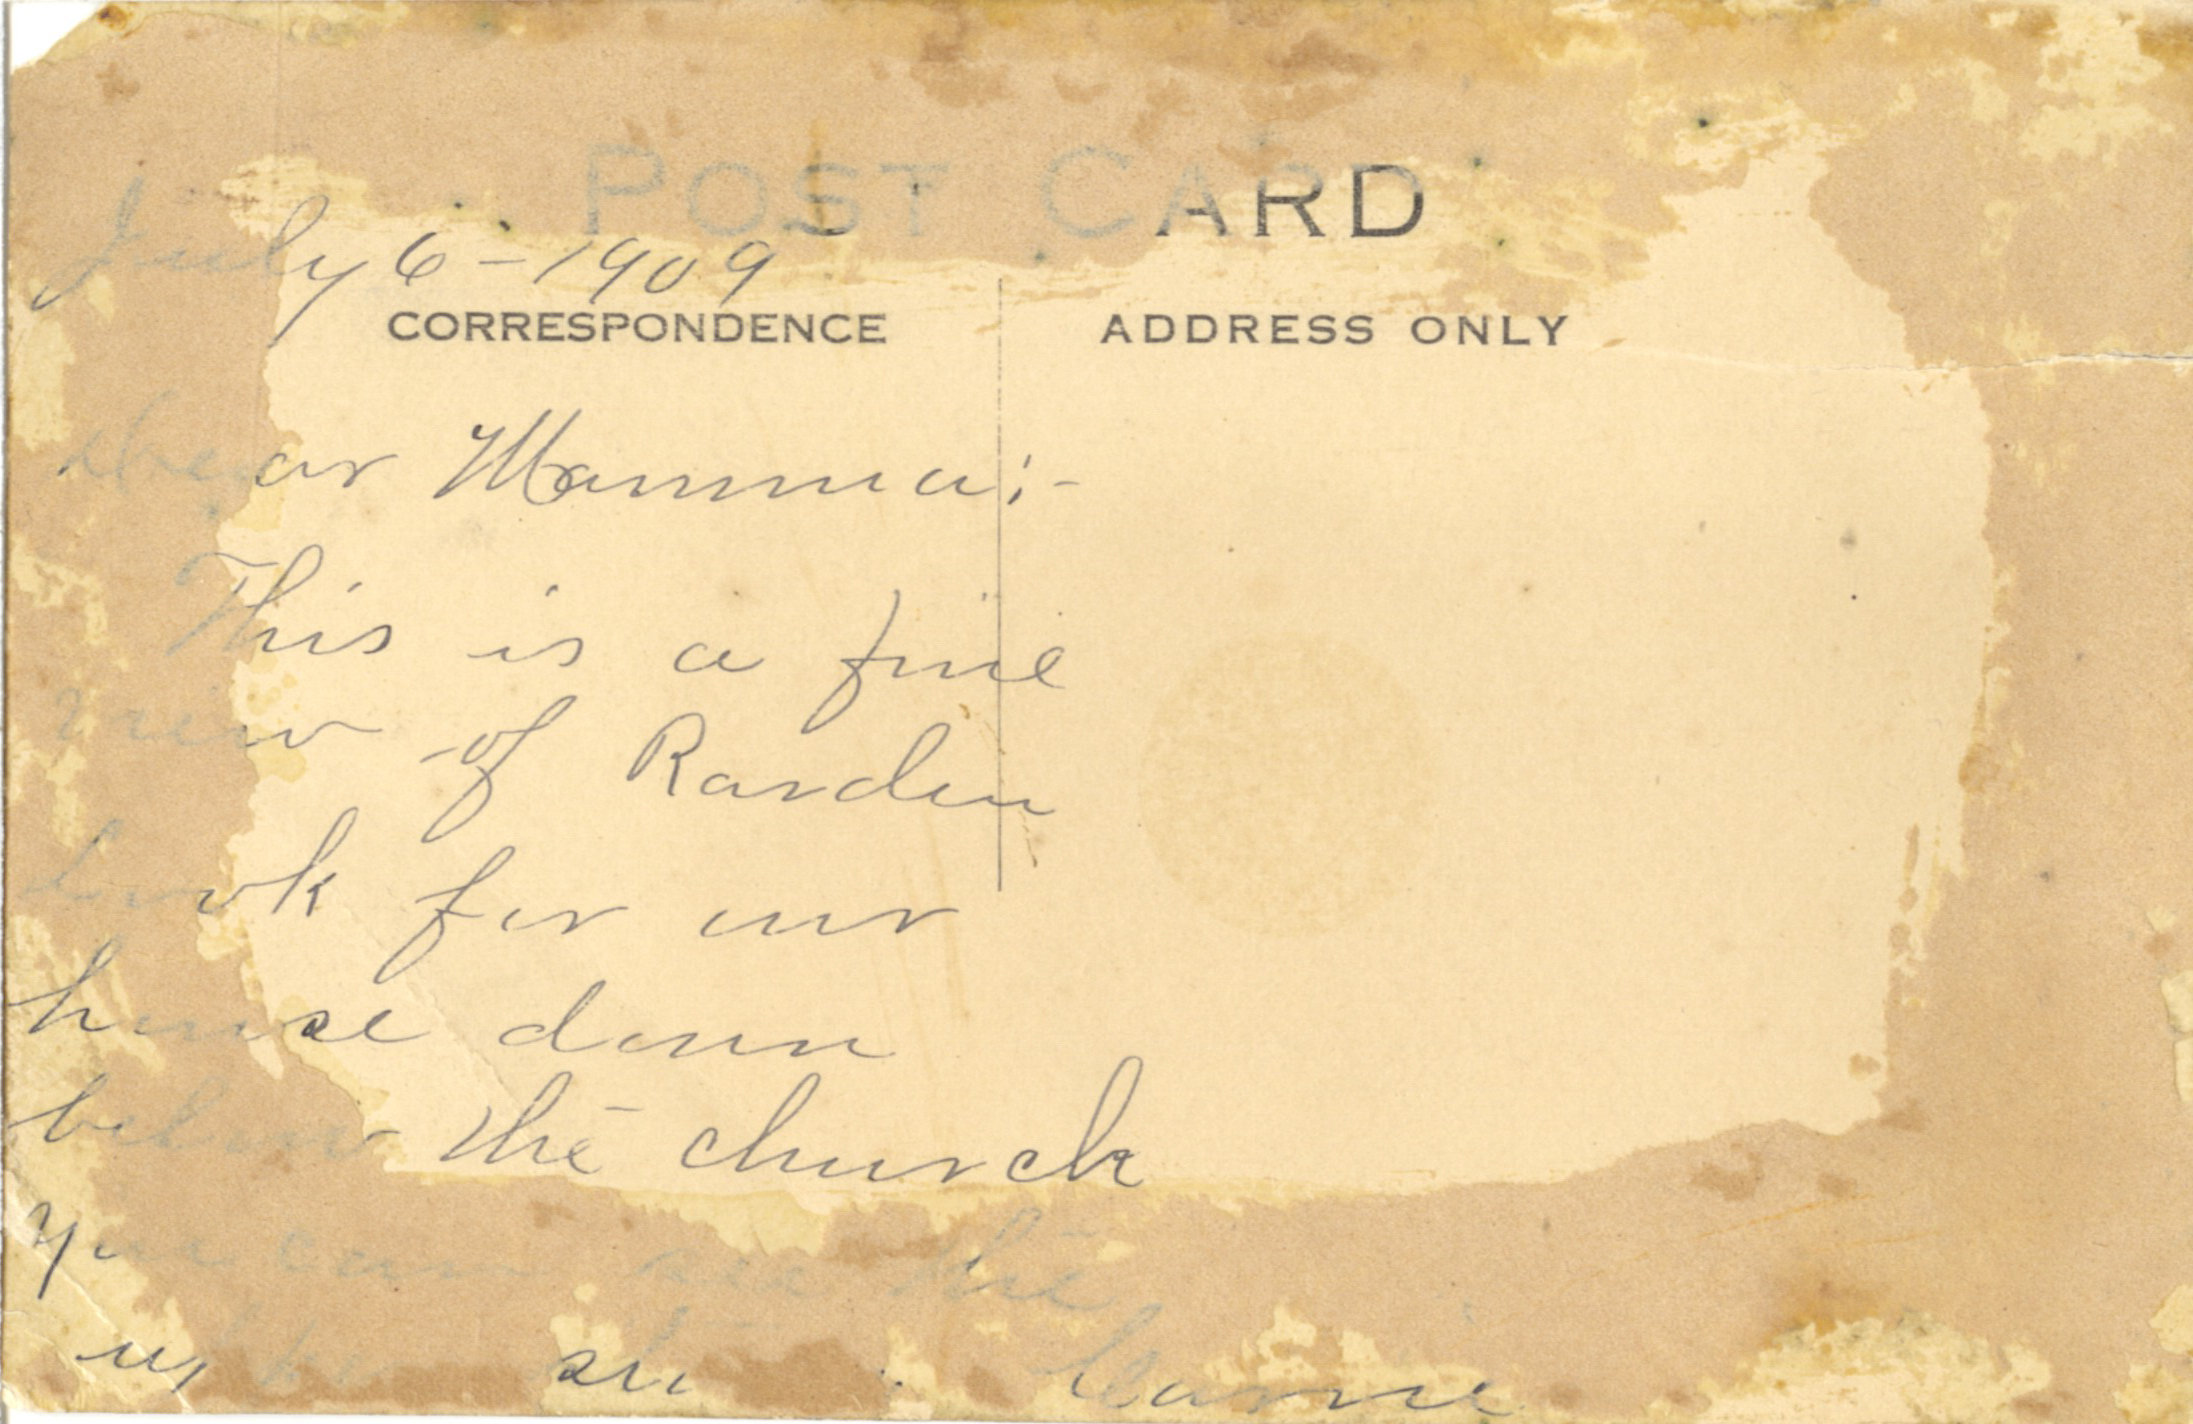 POST CARD
July 6-1909
CORRESPONDENCE
ADDRESS ONLY
Dear Mamma:-
This is a fine
view of Rarden
look for our
house down
below the church
you can see the